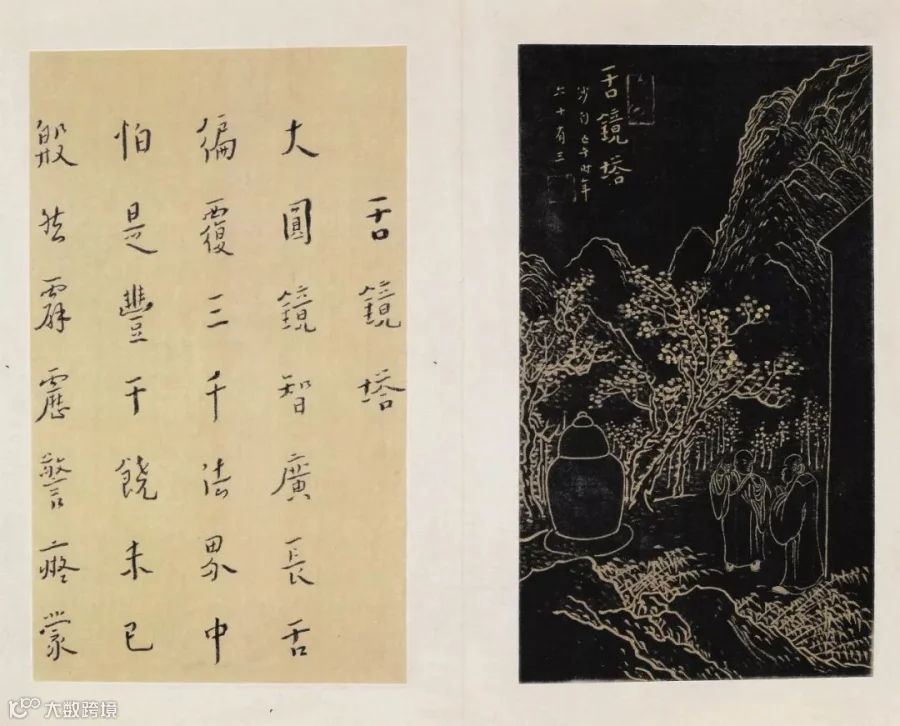 舌鏡塔
時年
六十有三
舌鏡塔
大圓鏡智廣長舌
徧覆三千法界中
怕是豐干饒未已
然霹靂警蒙
大数跨境